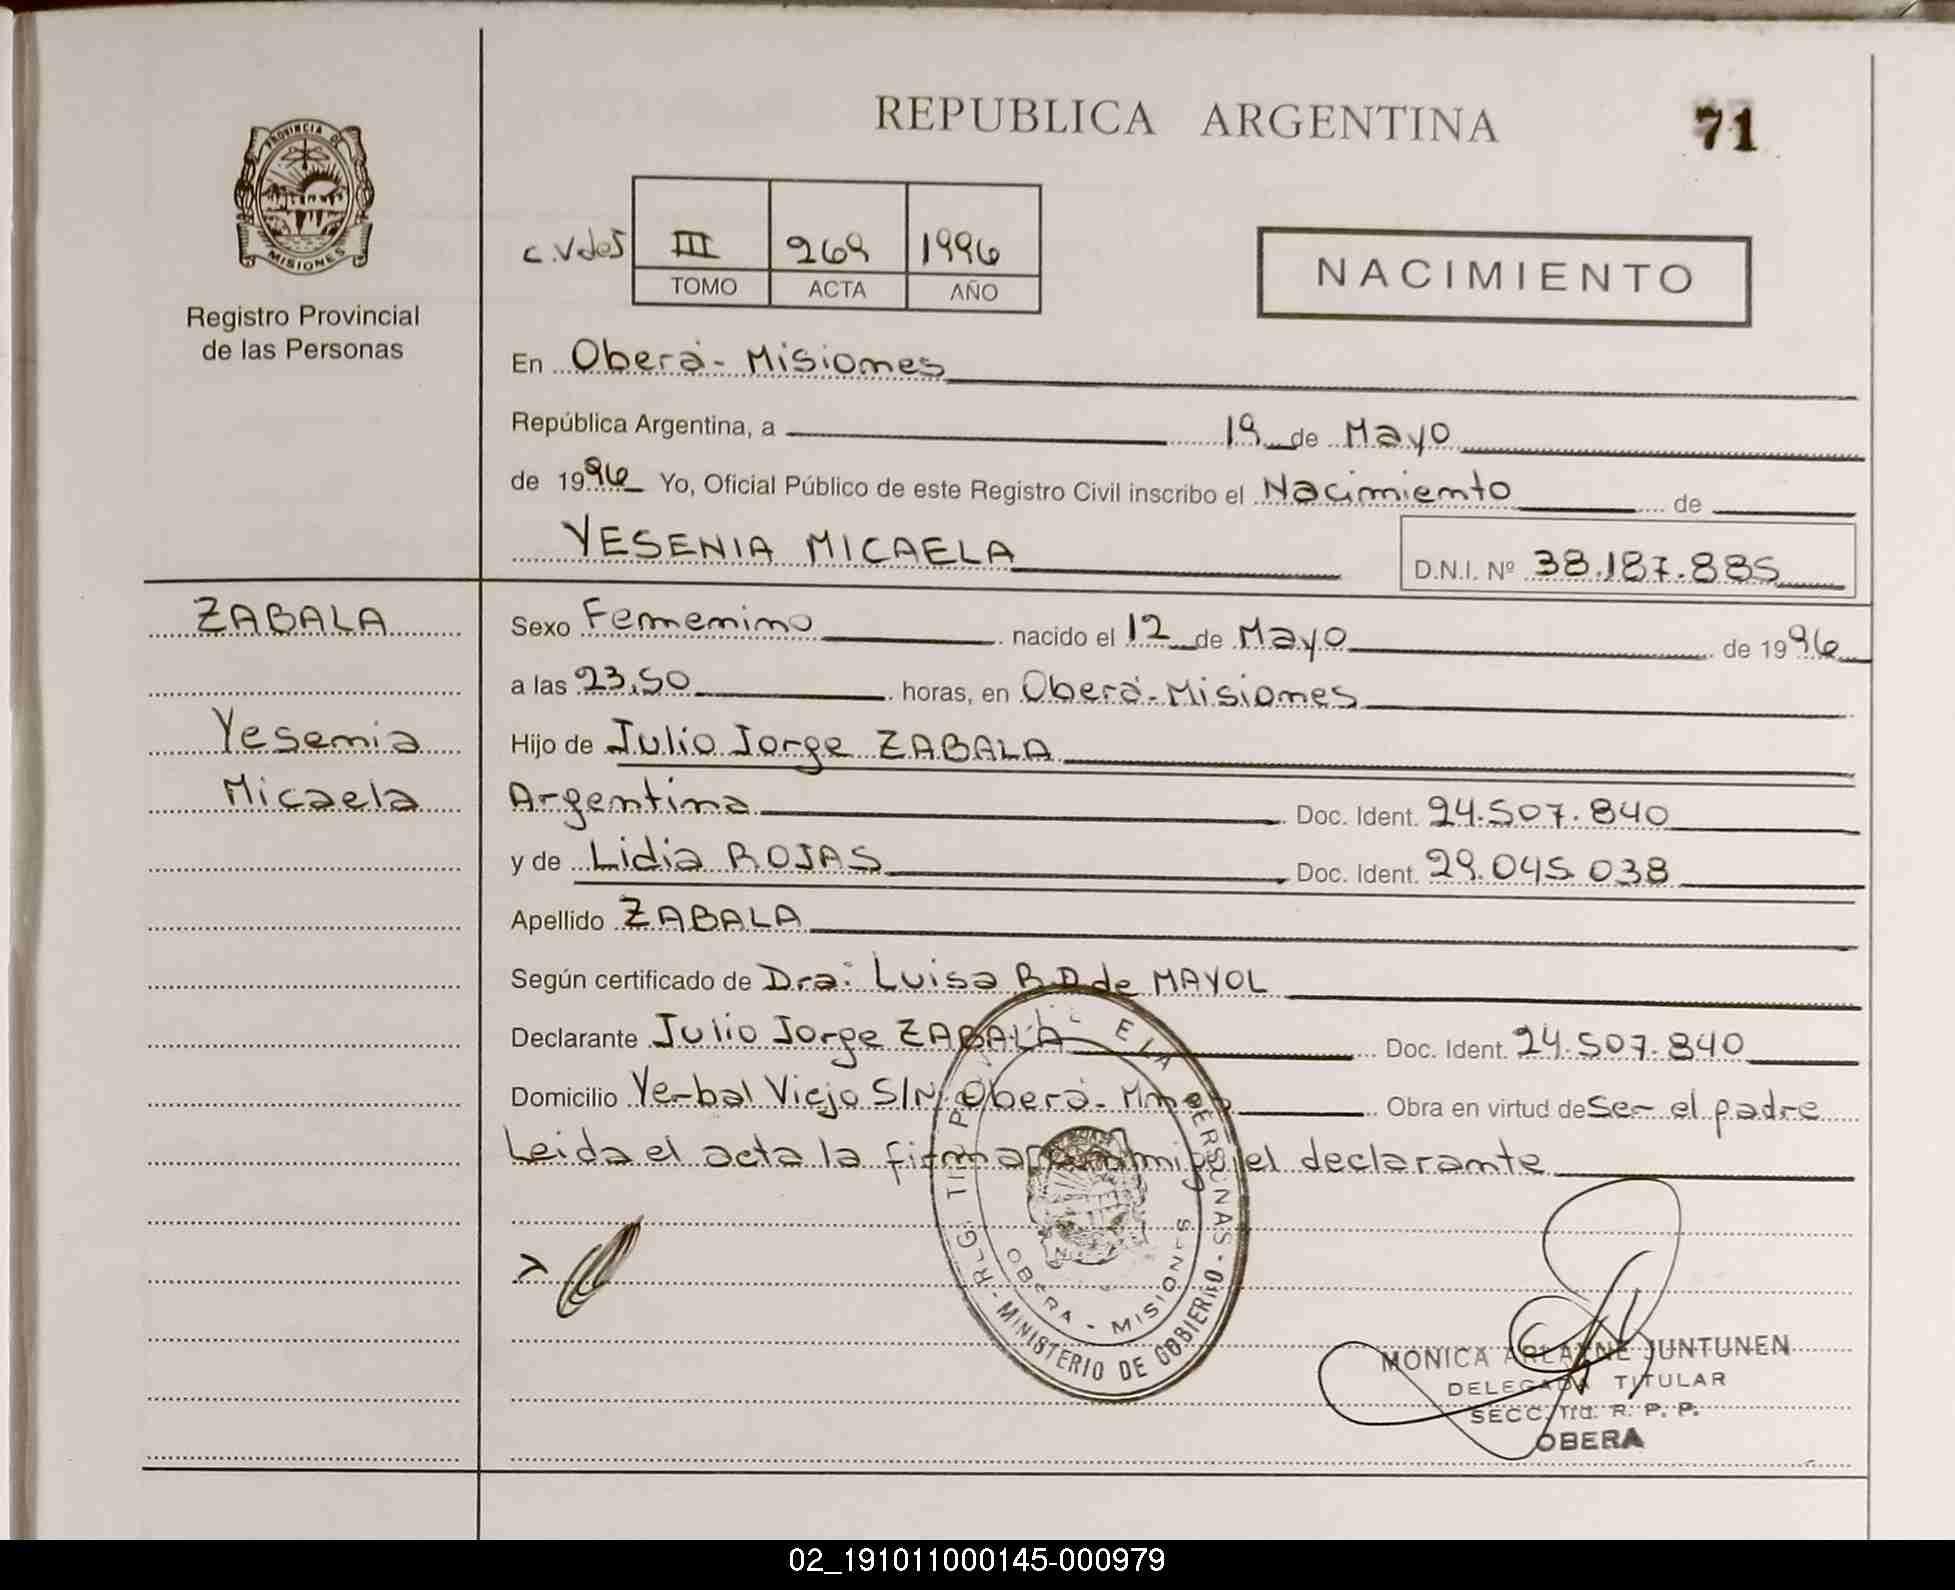 REPUBLICA ARGENTINA
71
PROVINCIA DE
MISIONES
Registro Provincial
de las Personas
III 269 1996
TOMO ACTA AÑO
NACIMIENTO
En Oberá - Misiones
República Argentina, a 19 de Mayo
de 1996 Yo, Oficial Público de este Registro Civil inscribo el Nacimiento de
YESENIA MICAELA
D.N.I. Nº 38.187.885
ZABALA
Yesenia
Micaela
Sexo Femenino nacido el 12 de Mayo de 1996
a las 23,50 horas, en Oberá - Misiones
Hijo de Julio Jorge ZABALA
Argentina Doc. Ident. 24.507.840
y de Lidia ROJAS Doc. Ident. 29.045.038
Apellido ZABALA
Según certificado de Dra: Luisa B.D de MAYOL
Declarante Julio Jorge ZABALA Doc. Ident. 24.507.840
Domicilio Yerbal Viejo S/N Oberá - Mnes Obra en virtud de Ser el padre
Leida el acta la firma conmigo el declarante
PERSONAS - MINISTERIO DE GOBIERNO -
OBERA - MISIONES
MONICA ARLAENE JUNTUNEN
DELEGADA TITULAR
SECC. R. P. P.
OBERA
02_191011000145-000979